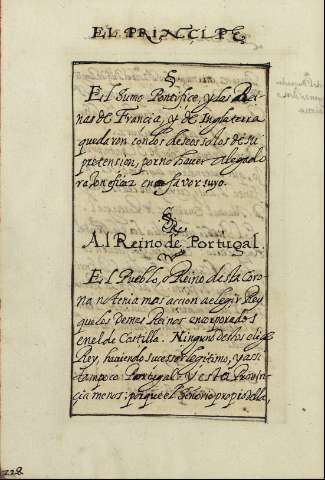 EL PRINCIPE
El Sumo Pontifice, y las Rei-
nas de Francia, y de Inglaterra
quedaron con los deseos solos de su
pretension, por no haver alegado
razon eficaz en favor suyo.
Al Reino de Portugal.
El Pueblo, o Reino desta Coro-
na no tenia mas accion a elegir Rey
que los demas Reinos encorporados
en el de Castilla. Ninguno dellos elige
Rey, haviendo sucesor legitimo, y assi
tampoco Portugal. Y esta Provin-
cia menos: porque el Señorio propio della,
228